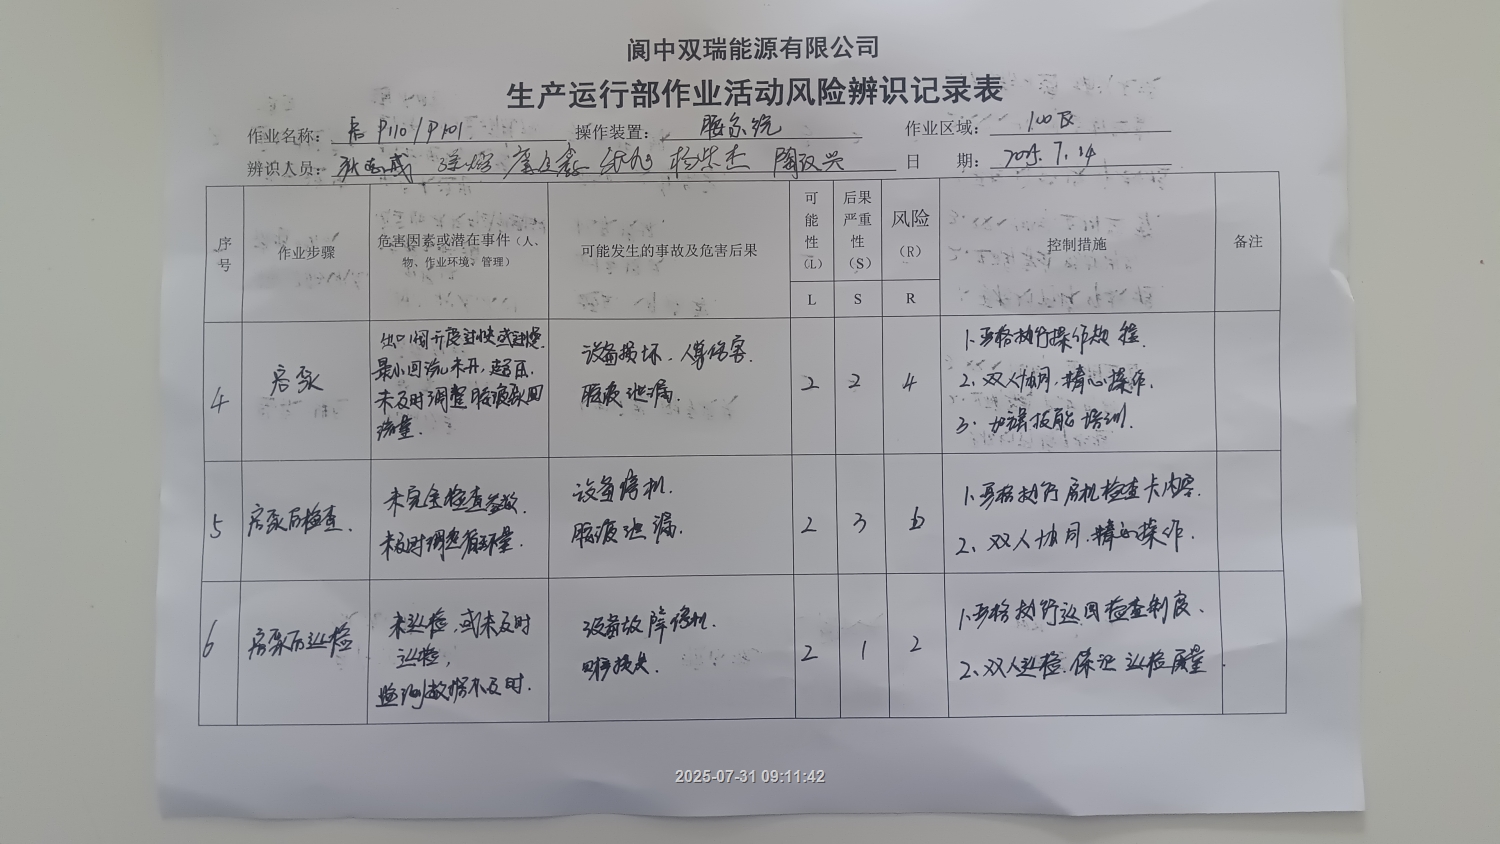 阆中双瑞能源有限公司
生产运行部作业活动风险辨识记录表
作业名称: 启 P110/P101 操作装置: 胺系统 作业区域: 100区
辨识人员: 陶汉兴 日 期: 2025.7.14
序号 作业步骤 危害因素或潜在事件(人、物、作业环境、管理) 可能发生的事故及危害后果 可能性(L) 后果严重性(S) 风险(R) 控制措施 备注
L S R
4 启泵
出口阀开度过快或过慢.
最小回流未开, 超压.
未及时调整胺液泵回
流量.
设备损坏. 人身伤害.
胺液泄漏.
2 2 4
1. 严格执行操作规程.
2. 双人协同. 精心操作.
3. 加强技能培训.
5 启泵后检查.
未完全检查参数.
未及时调整循环量.
设备停机.
胺液泄漏.
2 3 6
1. 严格执行启机检查卡内容.
2. 双人协同. 精心操作.
6 启泵后巡检
未巡检, 或未及时
巡检,
监测数据不及时.
设备故障停机.
财产损失.
2 1 2
1. 严格执行巡回检查制度.
2. 双人巡检. 保证巡检质量.
2025-07-31 09:11:42